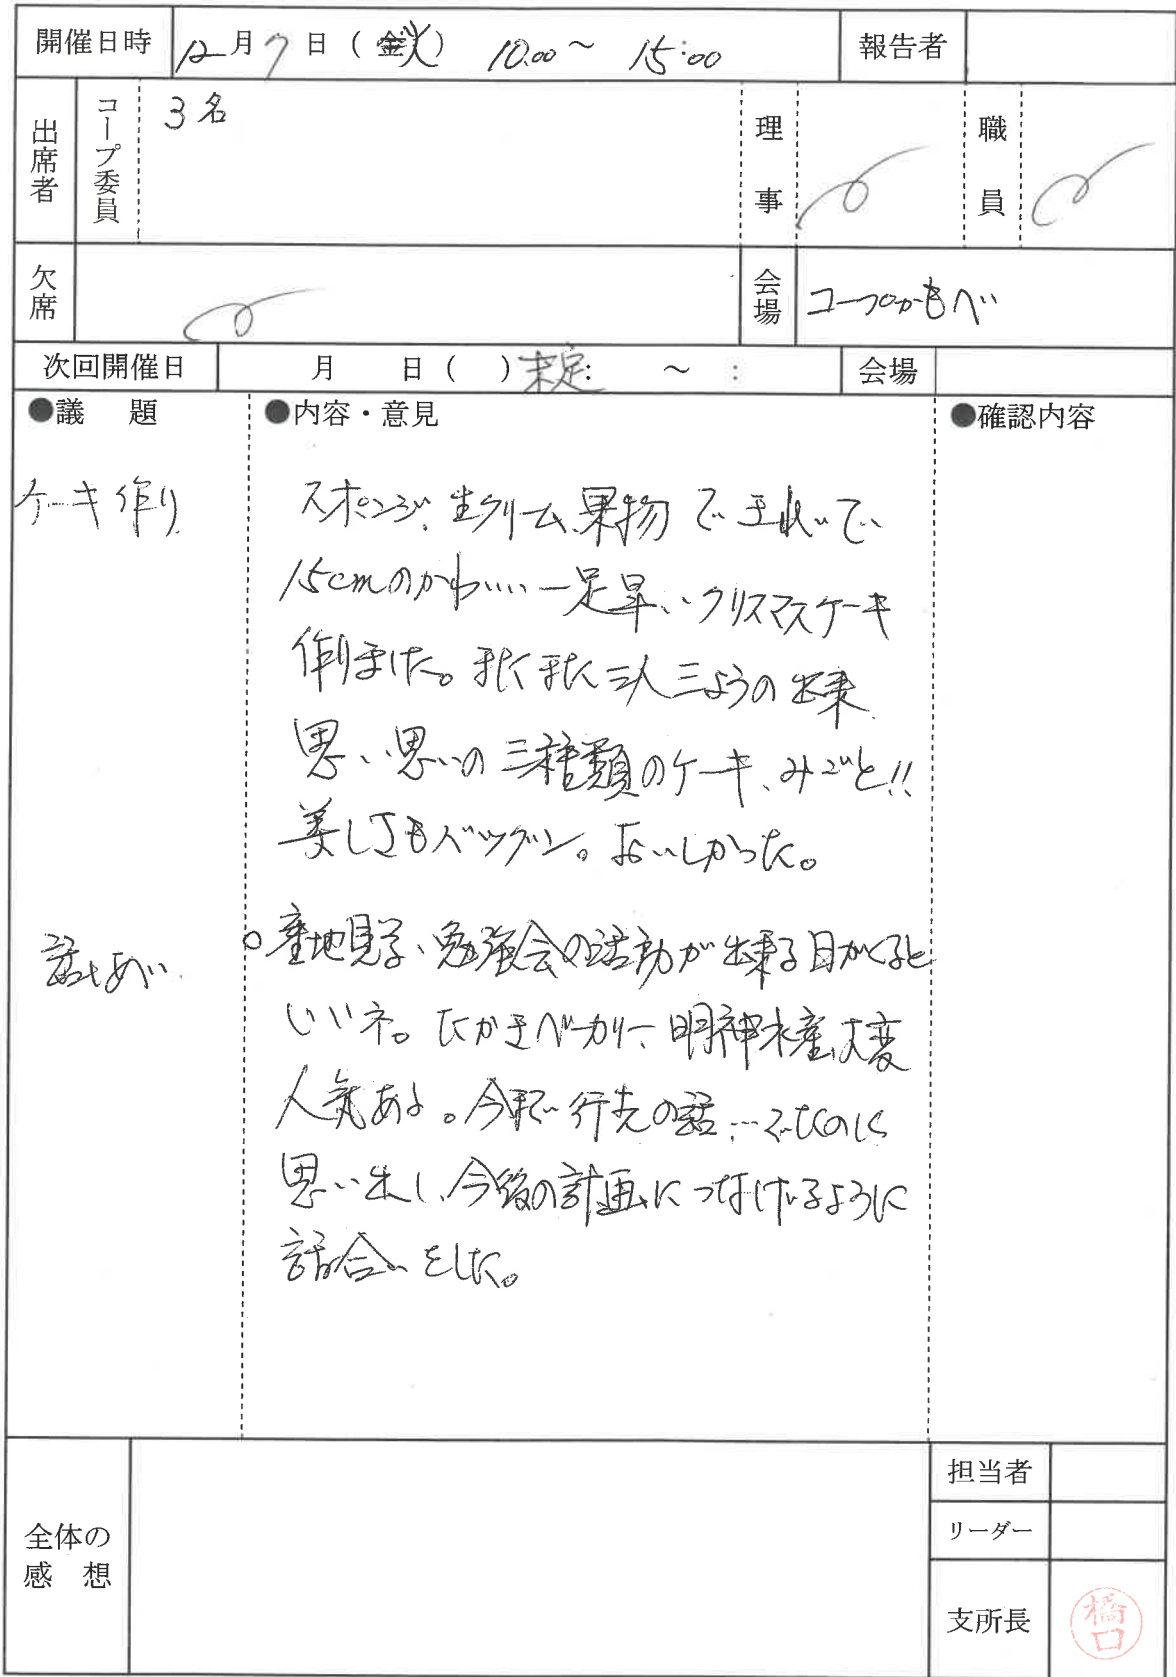 開催日時 12月7日(火) 10:00～ 15:00 報告者
出席者 コープ委員 3名 理事 職員
欠席 会場 コープかもべ
次回開催日 月 日( ) 未定: ～ : 会場
●議 題 ●内容・意見 ●確認内容
ケーキ作り スポンジ、生クリーム、果物で
15cmのかわいい一足早いクリスマスケーキ
作りました。またまた三人三ようの出来
思い思いの三種類のケーキ、みごと!!
美しさもバツグン。おいしかった。
話しあい 。産地見学、勉強会の活動が出来る日がくると
いいネ。たかきベーカリー、明神水産、大変
人気あり。今まで行先の話…
思い出し、今後の計画につなげるように
話合いをした。
全体の感想
担当者
リーダー
支所長 橋口